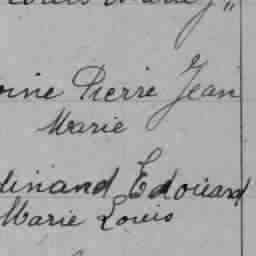 oine Pierre Jean
Marie
dinand Edouard
Marie Louis